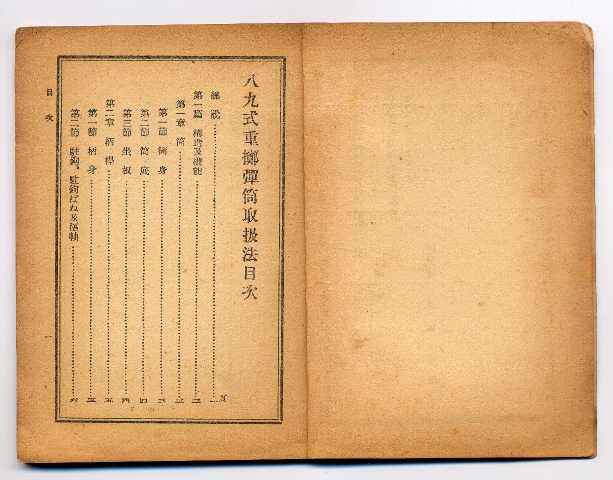 八九式重擲彈筒取扱法目次
頁
總說
第一篇 構造及機能
第一章 筒
第一節 筒身
第二節 筒底
第三節 坐板
第二章 柄桿
第一節 柄身
第二節 駐鉤、駐鉤ばね及
目次
一